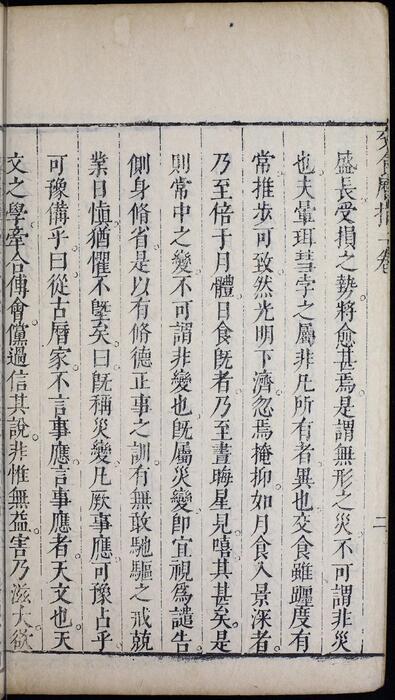 盛長受損之勢將愈甚焉是謂無形之災不可謂非災
也夫暈珥彗孛之屬非凡所有者異也交食雖躔度有
常推步可致然光明下濟忽焉掩抑如月食入景深者
乃至倍于月體日食既者乃至晝晦星見嘻其甚矣是
則常中之變不可謂非變也既屬災變卽宜視爲譴告
側身脩省是以有脩德正事之訓有無敢馳驅之戒兢
業日愼猶懼不墍矣曰既稱災變凡厥事應可豫占乎
可豫備乎曰從古曆家不言事應言事應者天文也天
文之學牽合傅會儻過信其說非惟無益害乃滋大欲
交食曆指一卷
二